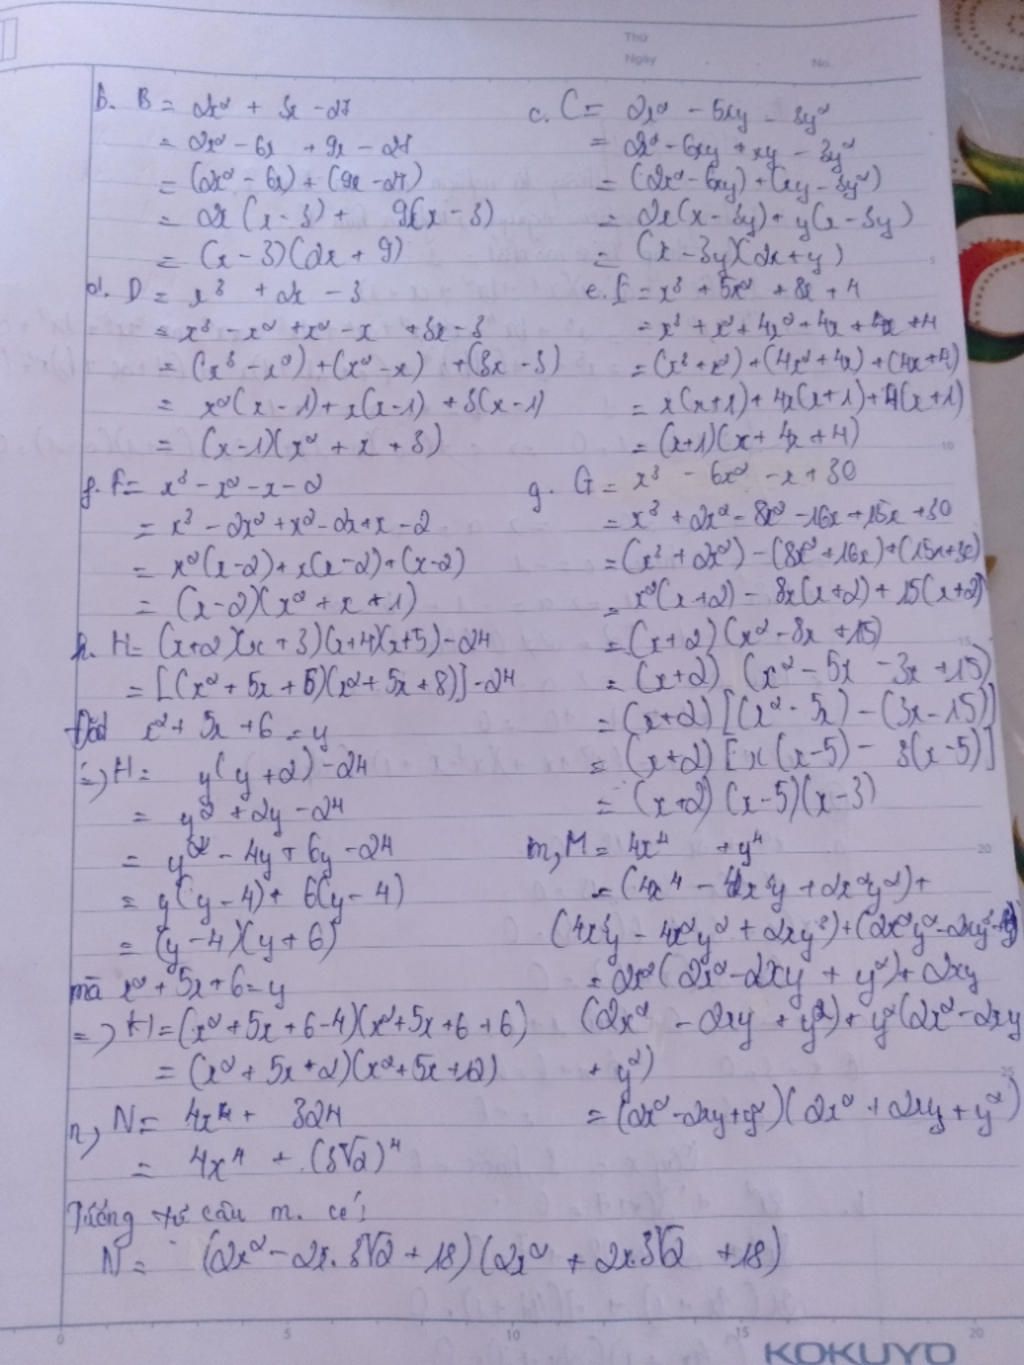 Thứ
Ngày
No.
b. B = 2x² + 3x - 27
= 2x² - 6x + 9x - 27
= (2x² - 6x) + (9x - 27)
= 2x (x - 3) + 9(x - 3)
= (x - 3)(2x + 9)
c. C = 2x² - 5xy - 3y²
= 2x² - 6xy + xy - 3y²
= (2x² - 6xy) + (xy - 3y²)
= 2x(x - 3y) + y(x - 3y)
= (x - 3y)(2x + y)
d. D = x³ + 2x - 3
= x³ - x² + x² - x + 3x - 3
= (x³ - x²) + (x² - x) + (3x - 3)
= x²(x - 1) + x(x - 1) + 3(x - 1)
= (x - 1)(x² + x + 3)
e. E = x³ + 5x² + 8x + 4
= x³ + x² + 4x² + 4x + 4x + 4
= (x³ + x²) + (4x² + 4x) + (4x + 4)
= x(x + 1) + 4x(x + 1) + 4(x + 1)
= (x + 1)(x + 4x + 4)
f. F = x³ - x² - x - 2
= x³ - 2x² + x² - 2x + x - 2
= x²(x - 2) + x(x - 2) + (x - 2)
= (x - 2)(x² + x + 1)
g. G = x³ - 6x² - x + 30
= x³ + 2x² - 8x² - 16x + 15x + 30
= (x³ + 2x²) - (8x² + 16x) + (15x + 30)
= x²(x + 2) - 8x(x + 2) + 15(x + 2)
= (x + 2)(x² - 8x + 15)
= (x + 2) (x² - 5x - 3x + 15)
= (x + 2) [(x² - 5x) - (3x - 15)]
= (x + 2) [x(x - 5) - 3(x - 5)]
= (x + 2) (x - 5)(x - 3)
h. H = (x + 2)(x + 3)(x + 4)(x + 5) - 24
= [(x² + 5x + 6)(x² + 5x + 8)] - 24
Đặt x² + 5x + 6 = y
=> H = y(y + 2) - 24
= y² + 2y - 24
= y² - 4y + 6y - 24
= y(y - 4) + 6(y - 4)
= (y - 4)(y + 6)
mà x² + 5x + 6 = y
=> H = (x² + 5x + 6 - 4)(x² + 5x + 6 + 6)
= (x² + 5x + 2)(x² + 5x + 12)
m, M = 4x⁴ + y⁴
= (4x⁴ - 4x³y + 2x²y²) +
(4x³y - 4x²y² + 2xy³) + (2x²y² - 2xy³
= 2x² (2x² - 2xy + y²) + 2xy
(2x² - 2xy + y²) + y²(2x² - 2xy
+ y²)
= (2x² - 2xy + y²)(2x² + 2xy + y²)
n, N = 4x⁴ + 324
= 4x⁴ + (3√2)⁴
Tương tự câu m. có:
N = (2x² - 2x.3√2 + 18)(2x² + 2x.3√2 + 18)
5
10
15
20
25
0 5 10 15 20
KOKUYO